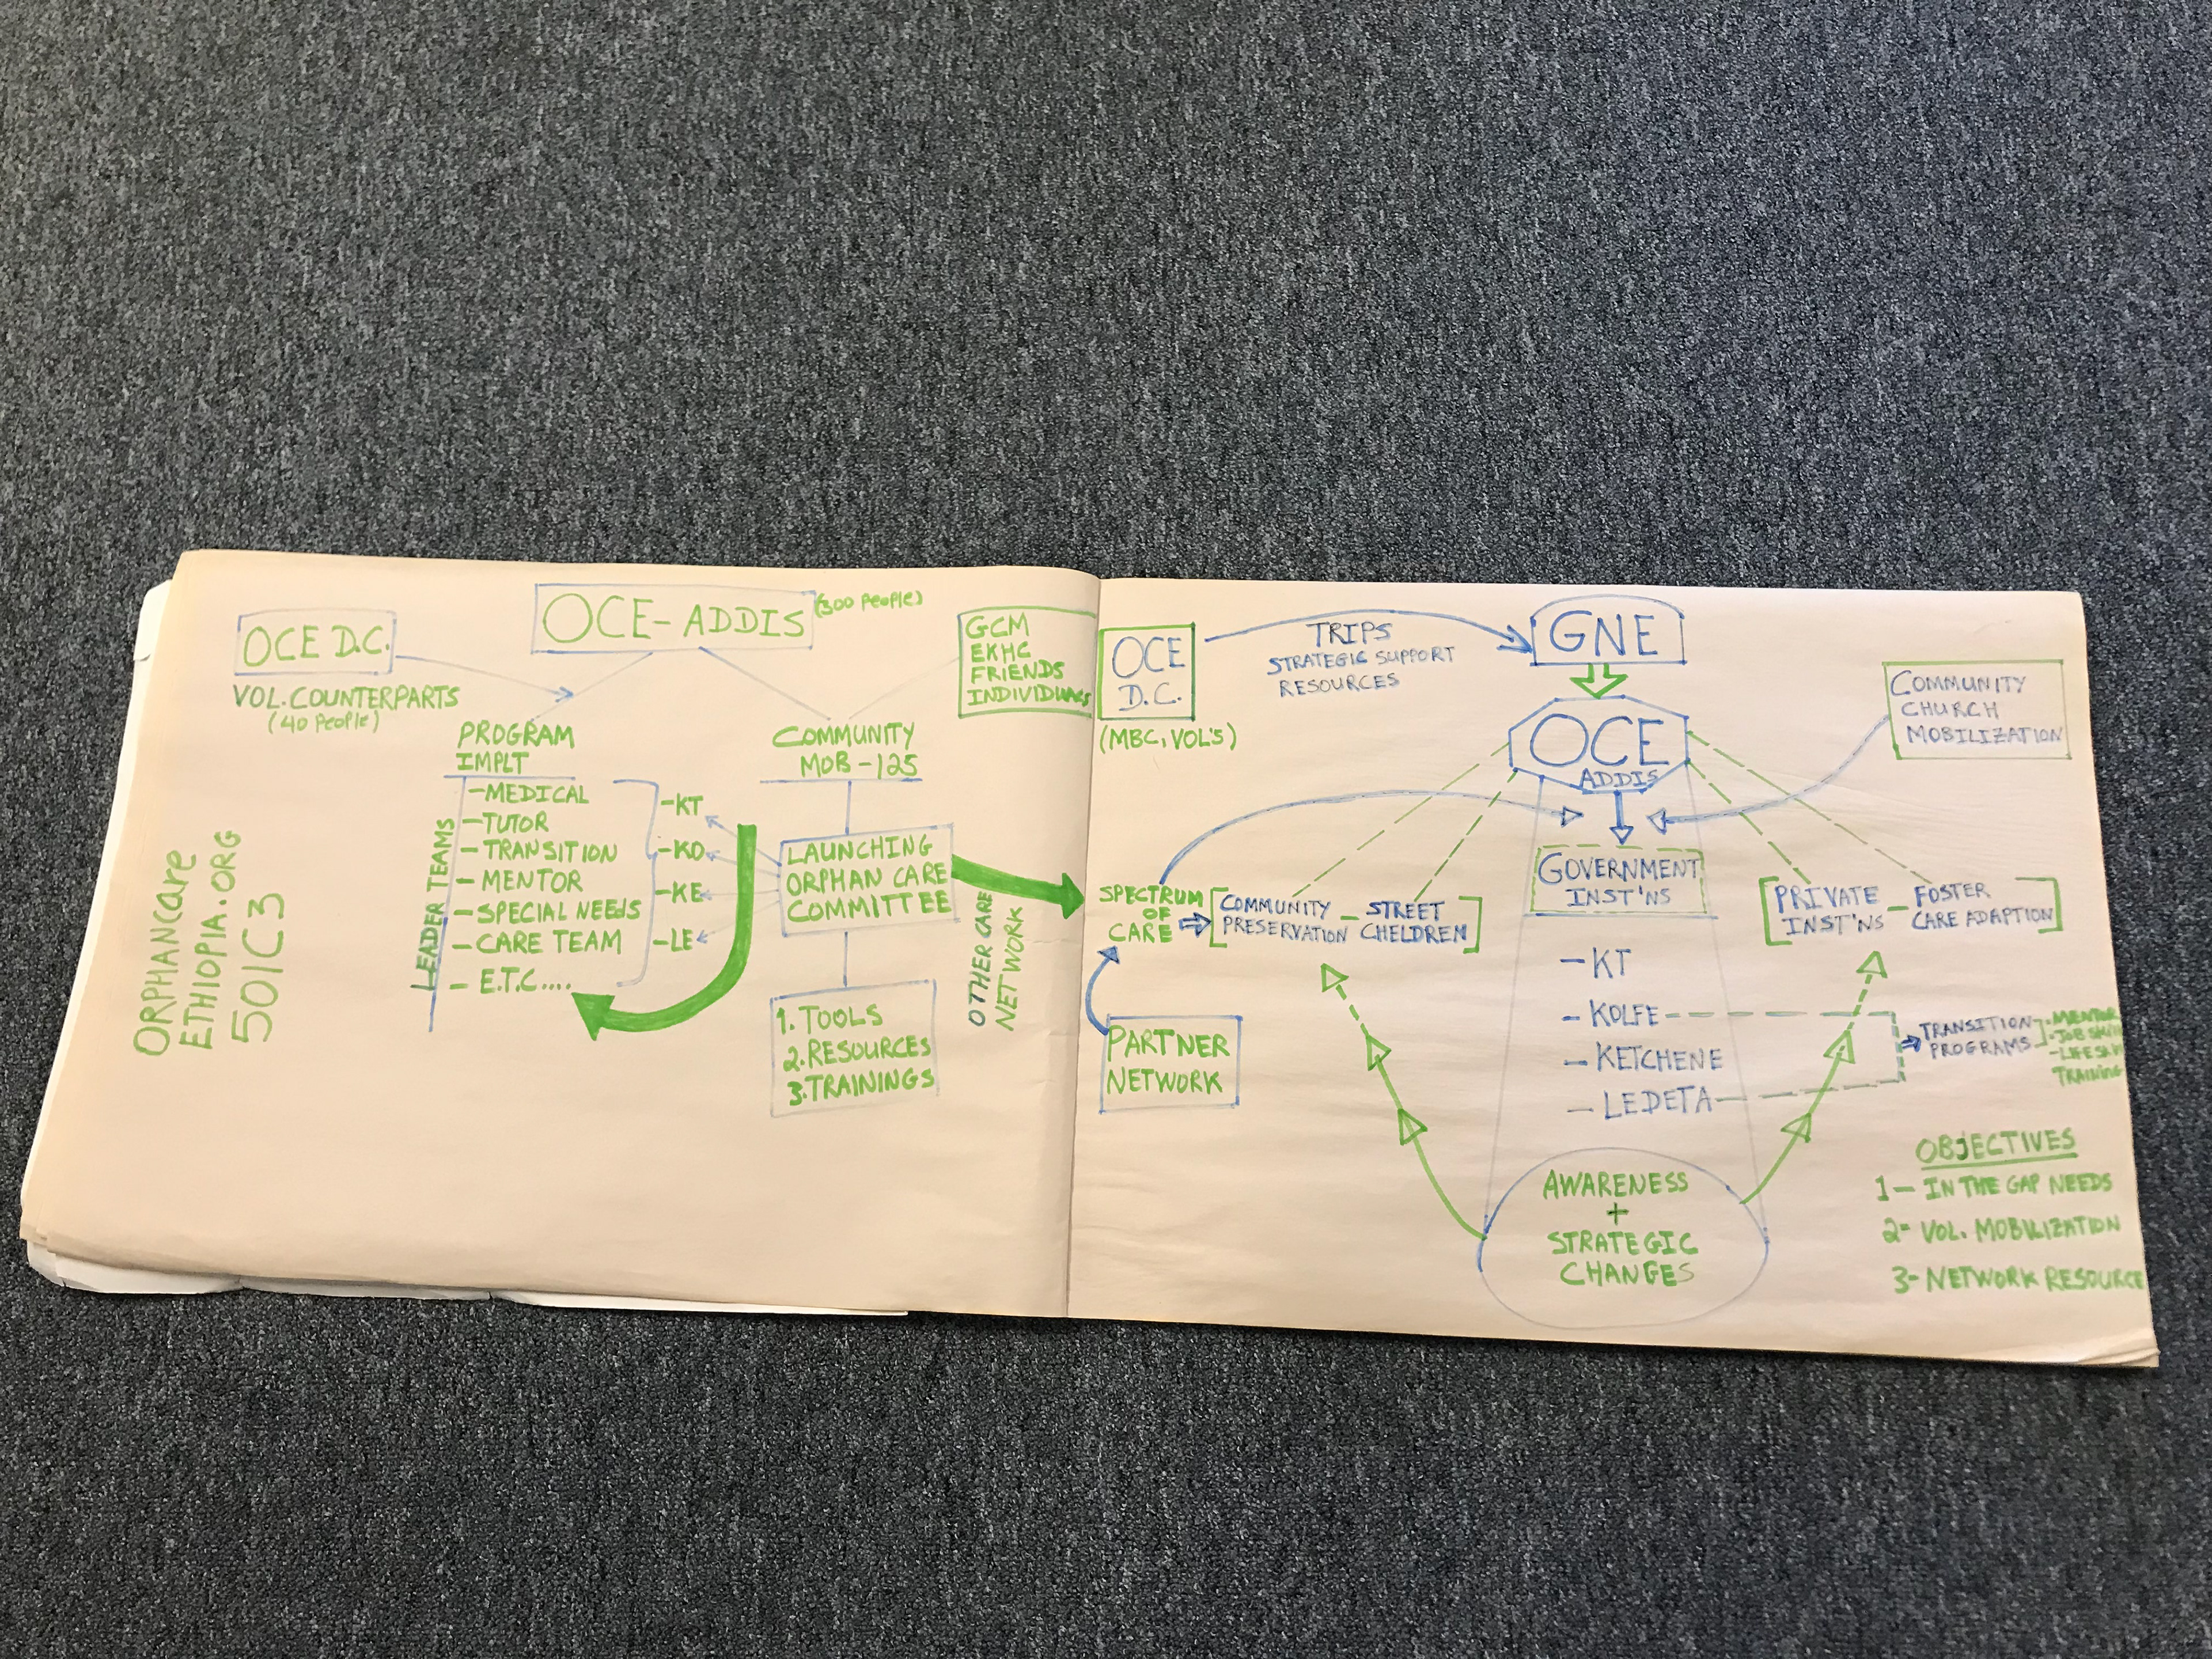 OCE D.C.
VOL. COUNTERPARTS
(40 People)
OCE-ADDIS
(300 People)
GCM
EKHC
FRIENDS
INDIVIDUALS
PROGRAM
IMPLT
LEADER TEAMS
-MEDICAL
-TUTOR
-TRANSITION
-MENTOR
-SPECIAL NEEDS
-CARE TEAM
- E.T.C....
-KT
-KO
-KE
-LE
COMMUNITY
MOB-125
LAUNCHING
ORPHAN CARE
COMMITTEE
1. TOOLS
2. RESOURCES
3. TRAININGS
OTHER CARE
NETWORK
ORPHANCare
ETHIOPIA.ORG
501C3
OCE
D.C.
(MBC, VOL'S)
TRIPS
STRATEGIC SUPPORT
RESOURCES
GNE
OCE
ADDIS
COMMUNITY
CHURCH
MOBILIZATION
SPECTRUM
OF
CARE
COMMUNITY
PRESERVATION
- STREET
CHELDREN
GOVERNMENT
INST'NS
PRIVATE
INST'NS
- FOSTER
CARE ADAPTION
-KT
-KOLFE
-KETCHENE
-LEDETA
PARTNER
NETWORK
TRANSITION
PROGRAMS
-MENTOR
TRAINING
AWARENESS
+
STRATEGIC
CHANGES
OBJECTIVES
1- IN THE GAP NEEDS
2- VOL. MOBILIZATION
3- NETWORK RESOURCE